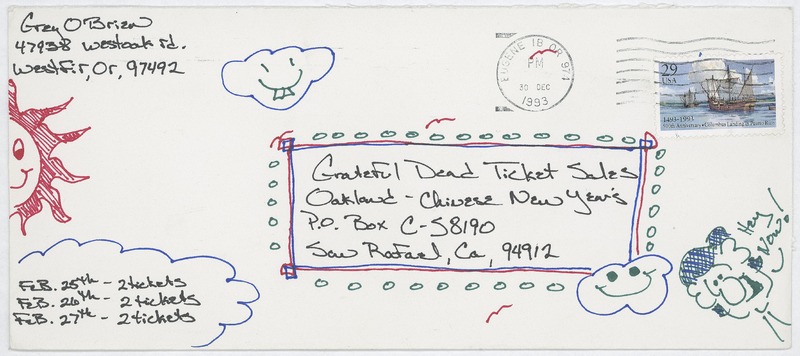 Greg O'Brien
47938 Westoak rd.
Westfir, Or, 97492
EUGENE 1B OR 971
PM
30 DEC
1993
29
USA
1493-1993
500th Anniversary • Columbus Landing in Puerto Rico
Grateful Dead Ticket Sales
Oakland - Chinese New Year's
P.O. Box C-S8190
San Rafael, Ca, 94912
Hey
Now!
FEB. 25th - 2 tickets
FEB. 26th - 2 tickets
FEB. 27th - 2 tickets